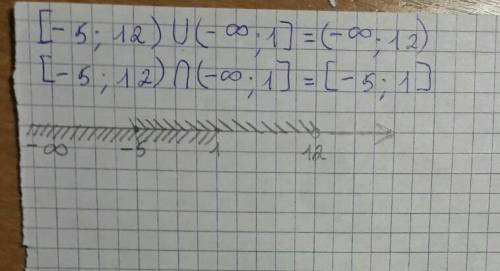 [-5; 12) ∪ (-∞; 1] = (-∞; 12)
[-5; 12) ∩ (-∞; 1] = [-5; 1]
-∞ -5 1 12